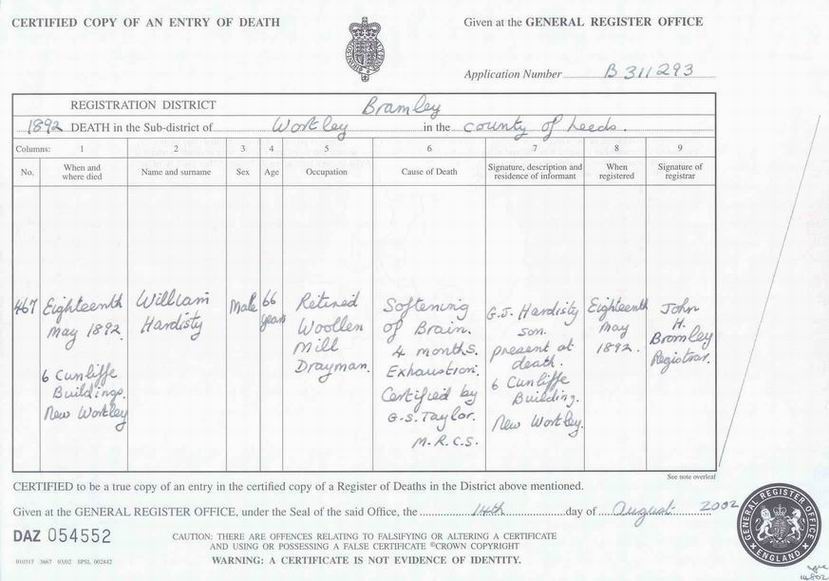 CERTIFIED COPY OF AN ENTRY OF DEATH
Given at the GENERAL REGISTER OFFICE
Application Number B 311293
REGISTRATION DISTRICT Bramley
1892 DEATH in the Sub-district of Wortley in the county of Leeds.
Columns: 1 2 3 4 5 6 7 8 9
No.
When and
where died
Name and surname
Sex
Age
Occupation
Cause of Death
Signature, description and
residence of informant
When
registered
Signature of
registrar
467
Eighteenth
May 1892.
6 Cunliffe
Buildings.
New Wortley
William
Hardisty
Male
66
years
Retired
Woollen
Mill
Drayman.
Softening
of Brain.
4 months.
Exhaustion.
Certified by
G.S. Taylor.
M.R.C.S.
G.J. Hardisty
son.
present at
death.
6 Cunliffe
Building.
New Wortley.
Eighteenth
May
1892.
John
H.
Bromley
Registrar.
See note overleaf
CERTIFIED to be a true copy of an entry in the certified copy of a Register of Deaths in the District above mentioned.
Given at the GENERAL REGISTER OFFICE, under the Seal of the said Office, the 14th day of August 2002
DAZ 054552
CAUTION: THERE ARE OFFENCES RELATING TO FALSIFYING OR ALTERING A CERTIFICATE
AND USING OR POSSESSING A FALSE CERTIFICATE ©CROWN COPYRIGHT
WARNING: A CERTIFICATE IS NOT EVIDENCE OF IDENTITY.
GENERAL REGISTER OFFICE
ENGLAND